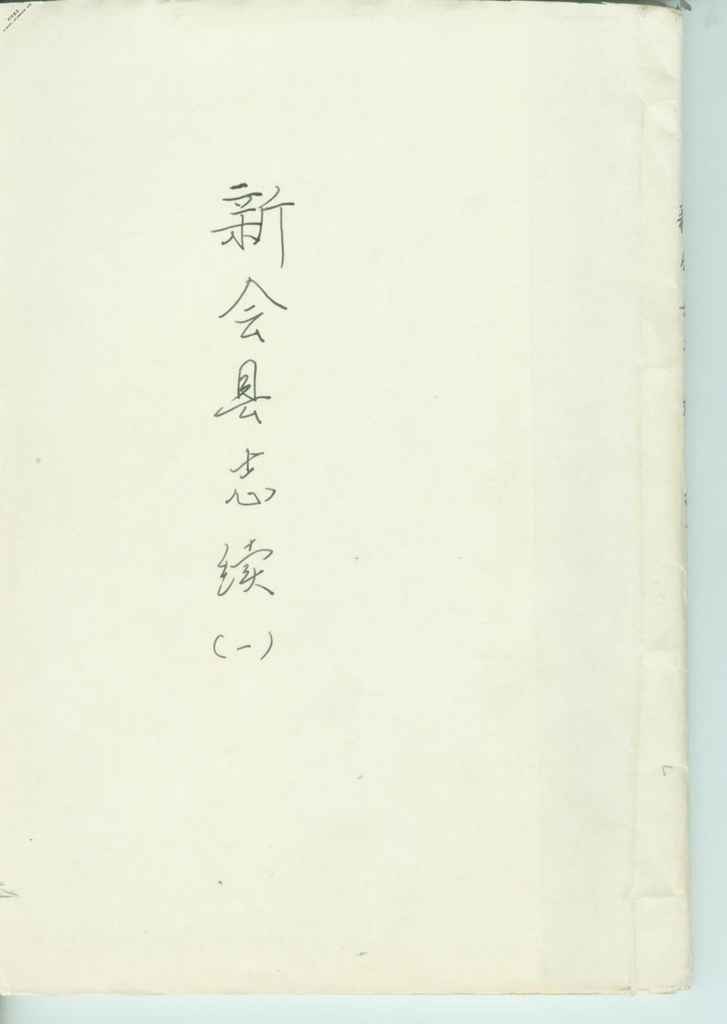 新会县志续
(一)